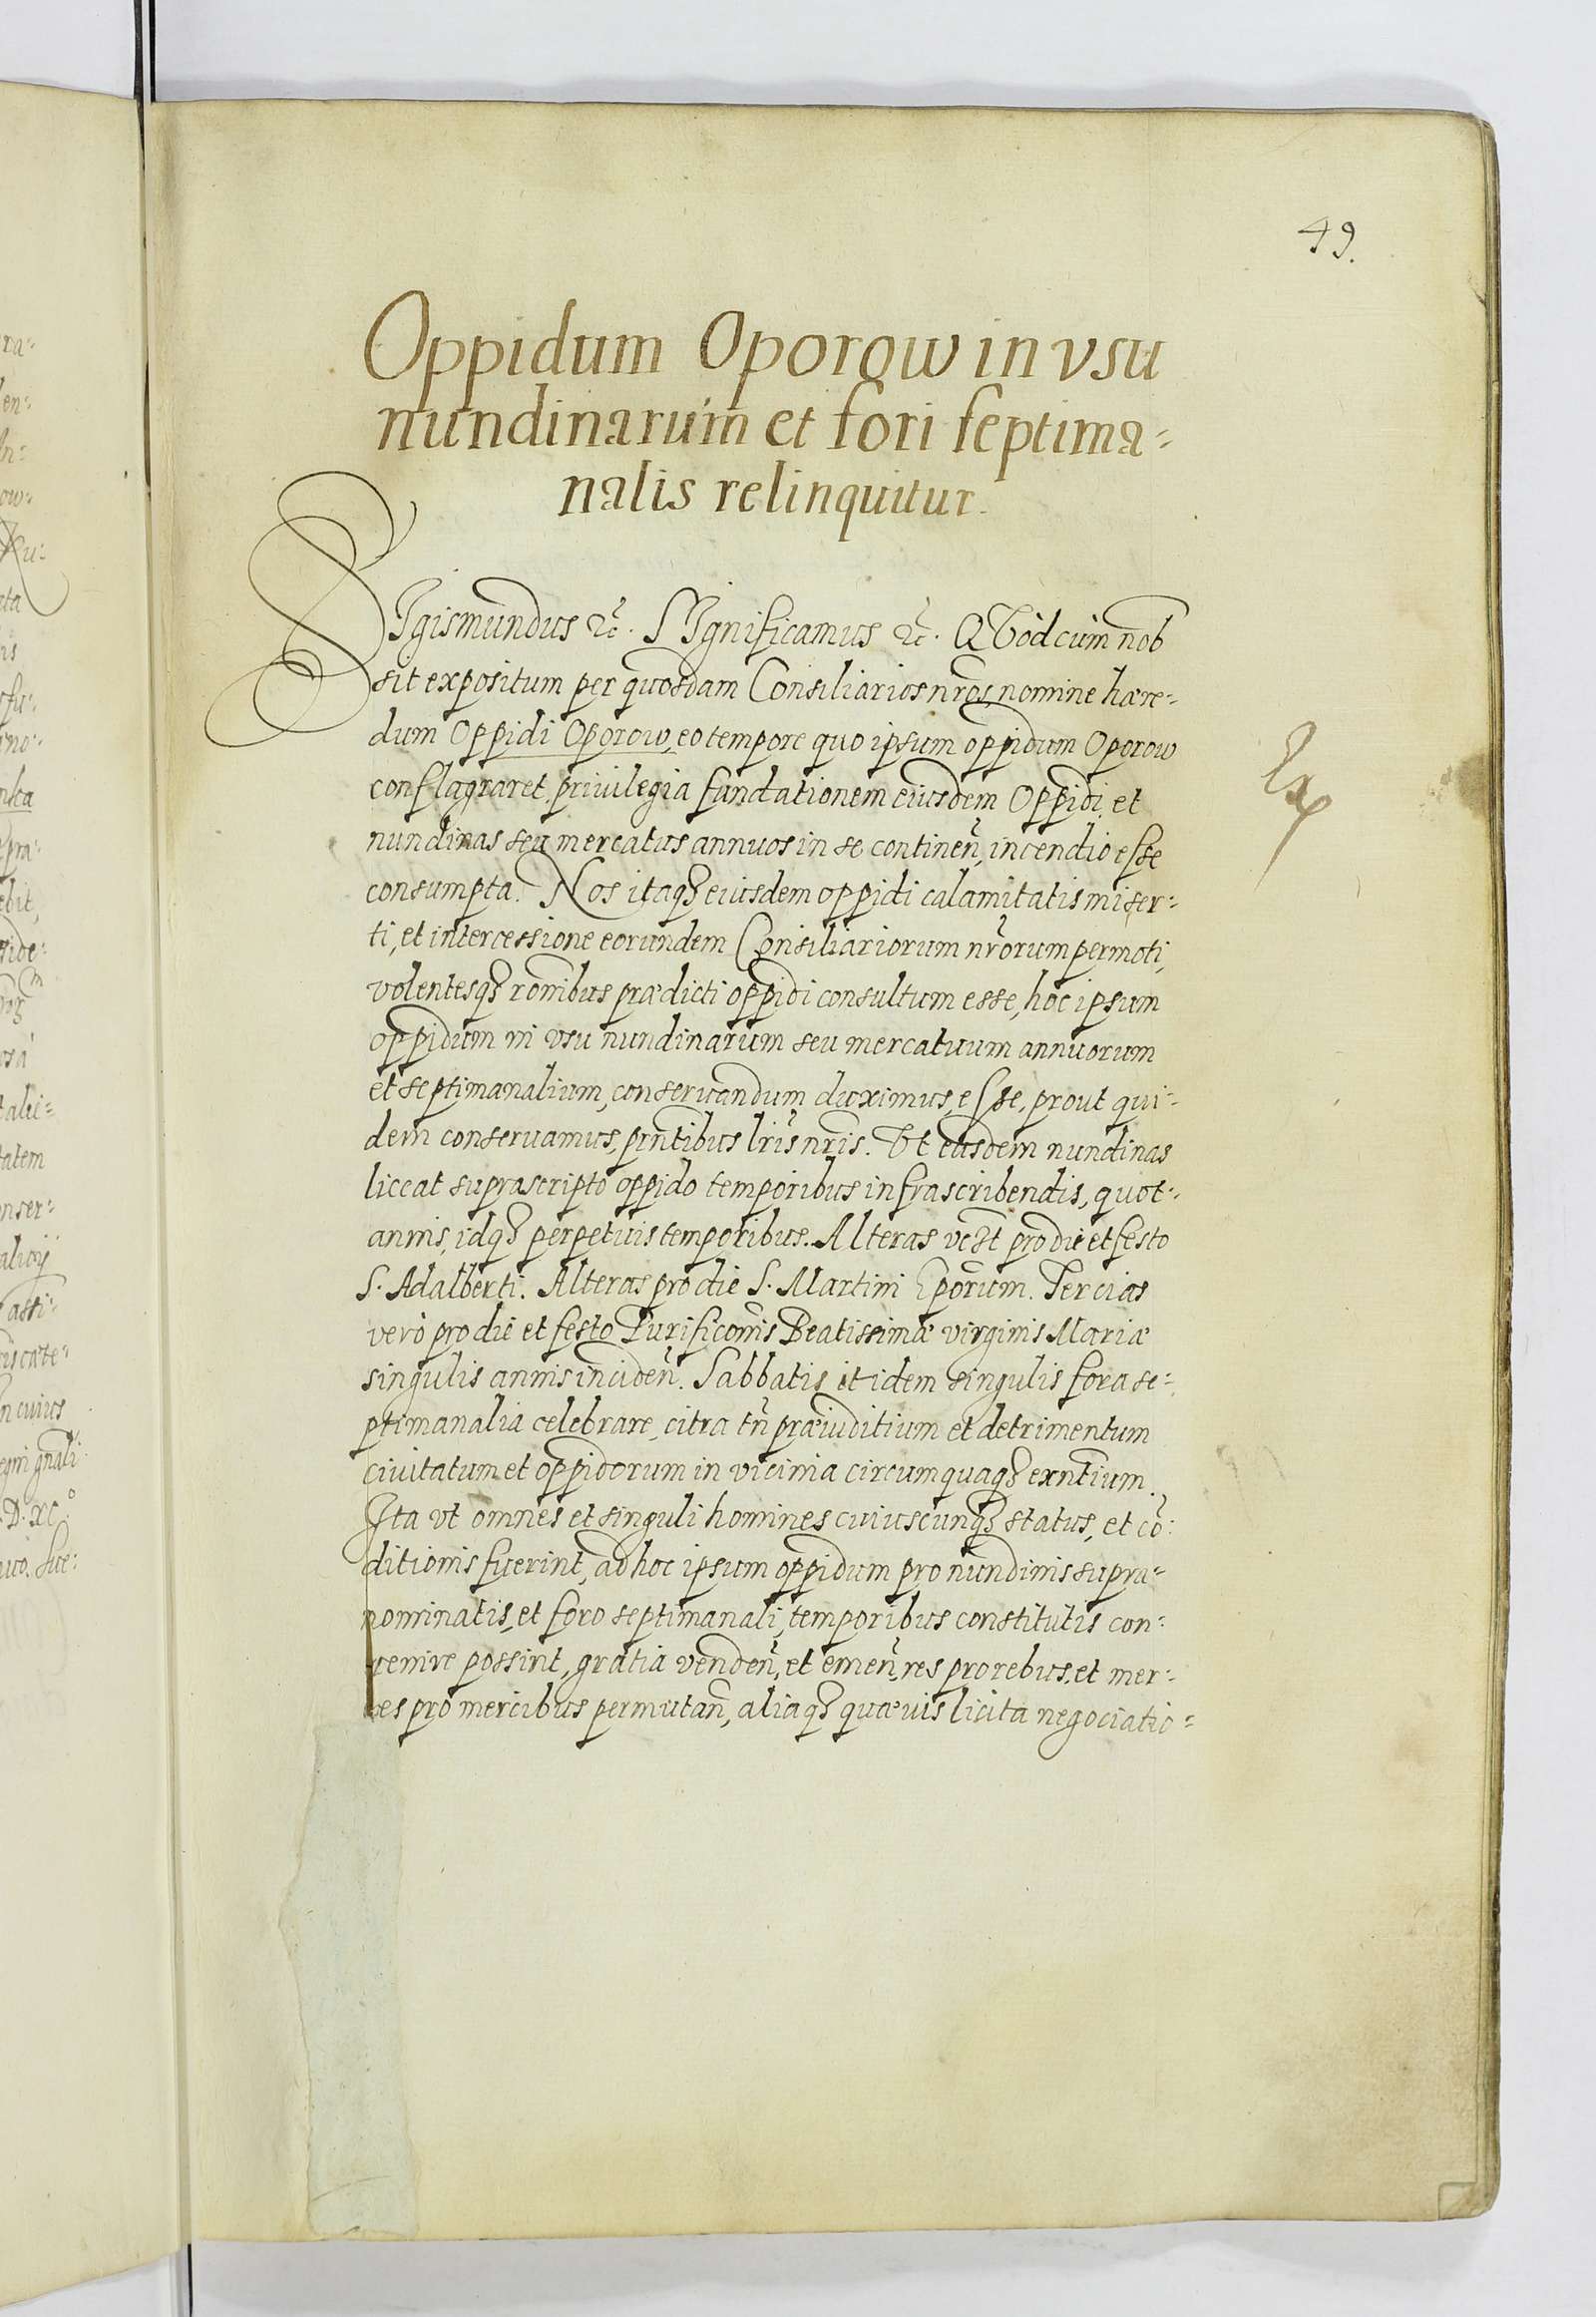 49.
Oppidum Oporow in vsu
nundinarum et fori septima=
nalis relinquitur.
SIgismundus ꝛc̃. SIgnificamus ꝛc̃. QVòd cùm nob
sit expositum per quosdam Consiliarios nr̃os, nomine hære=
dum Oppidi Oporow, eo tempore quo ipsum oppidum Oporow
conflagraret, priuilegia fundationem eiusdem Oppidi, et
nundinas seu mercatus annuos in se continen̄, incendio esse
consumpta. Nos itaqꝫ eiusdem oppidi calamitatis miser=
ti, et intercessione eorundem Consiliariorum nr̃orum permoti,
volentesqꝫ rōnibus prædicti oppidi consultum esse, hoc ipsum
oppidum in vsu nundinarum seu mercatuum annuorum
et septimanalium, conseruandum duximus, esse, prout qui=
dem conseruamus, pn̄tibus lr̃is nr̃is. Vt easdem nundinas
liceat suprascripto oppido temporibus infrascribendis, quot=
annis, idqꝫ perpetuis temporibus. Alteras pro die et festo
S. Adalberti. Alteras pro die S. Martini Ep̄orum. Tercias
verò pro die et festo Purificōnis Beatissimæ virginis Mariæ
singulis annis inciden̄. Sabbatis itidem singulis fora se=
ptimanalia celebrare, citra tn̄ præiuditium et detrimentum
ciuitatum et oppidorum in vicinia circumquaqꝫ exn̄tium.
Ita vt omnes et singuli homines cuiuscunqꝫ status, et cō=
ditionis fuerint, ad hoc ipsum oppidum pro nundinis supra=
nominatis, et foro septimanali, temporibus constitutis con=
uenire possint, gratia venden̄, et emen̄, res pro rebus, et mer=
ces pro mercibus permutan̄, aliaqꝫ quæuis licita negociatio=